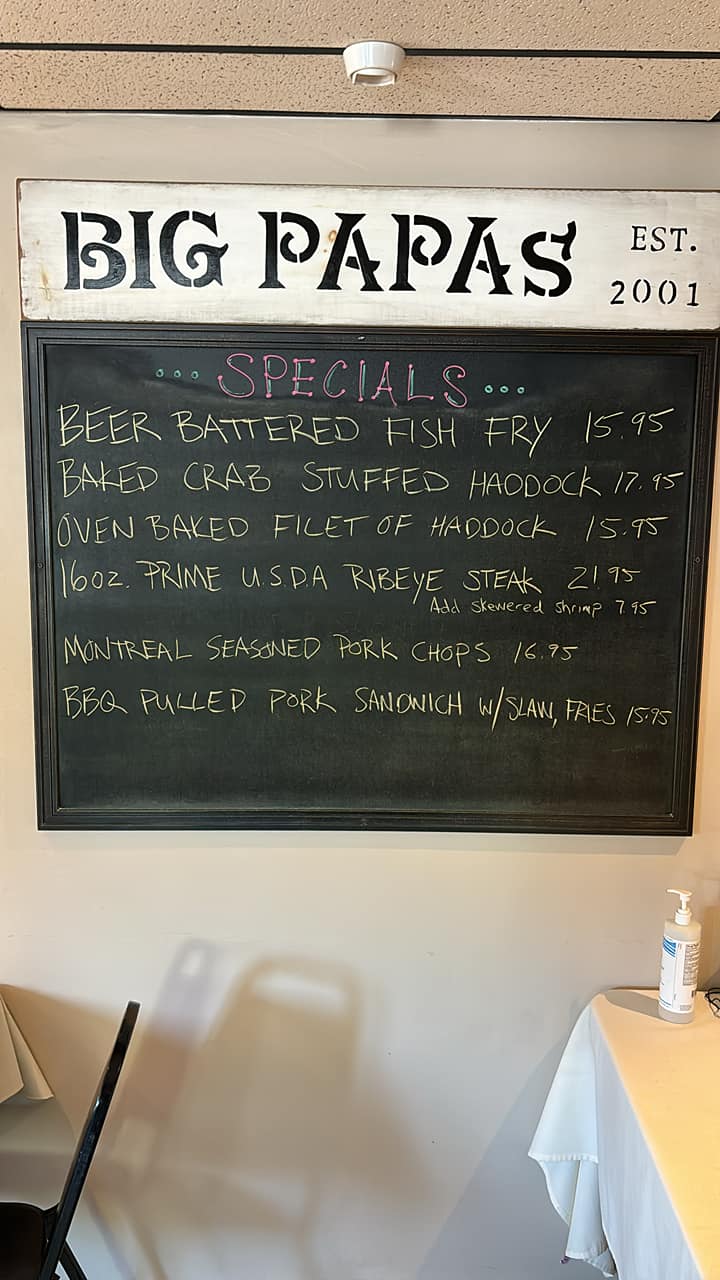 BIG PAPAS
EST.
2001
... SPECIALS...
BEER BATTERED FISH FRY 15.95
BAKED CRAB STUFFED HADDOCK 17.95
OVEN BAKED FILET OF HADDOCK 15.95
16oz. PRIME U.S.D.A RIBEYE STEAK 21.95
Add skewered shrimp 7.95
MONTREAL SEASONED PORK CHOPS 16.95
BBQ PULLED PORK SANDWICH W/SLAW, FRIES 15.95